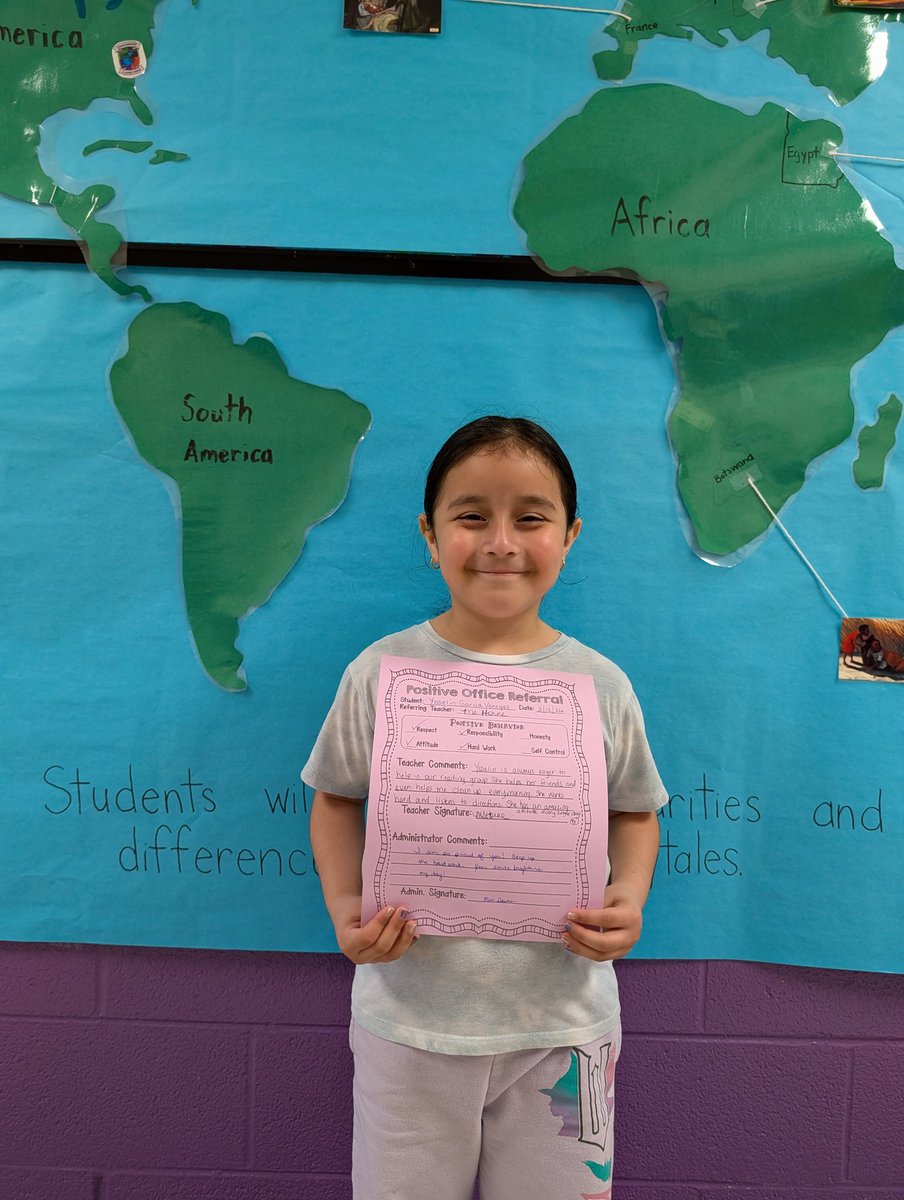 merica
France
Egypt
Africa
South
America
Botswana
Positive Office Referral
Student: Yoselin Garcia Venegas Date:
Referring Teacher: Ms. Horne
Positive Behavior
Respect Responsibility Honesty
Attitude Hard Work Self Control
Teacher Comments: Yoselin is always eager to
help in our reading group. She helps her friends and
even helps me clean up every morning. She works
hard and listens to directions. She has an amazing
Teacher Signature: attitude every single day
Administrator Comments:
I am so proud of you! Keep up
the hard work. Your smile brightens
my day!
Admin. Signature: Miss
Students wil arities and
differenc tales.